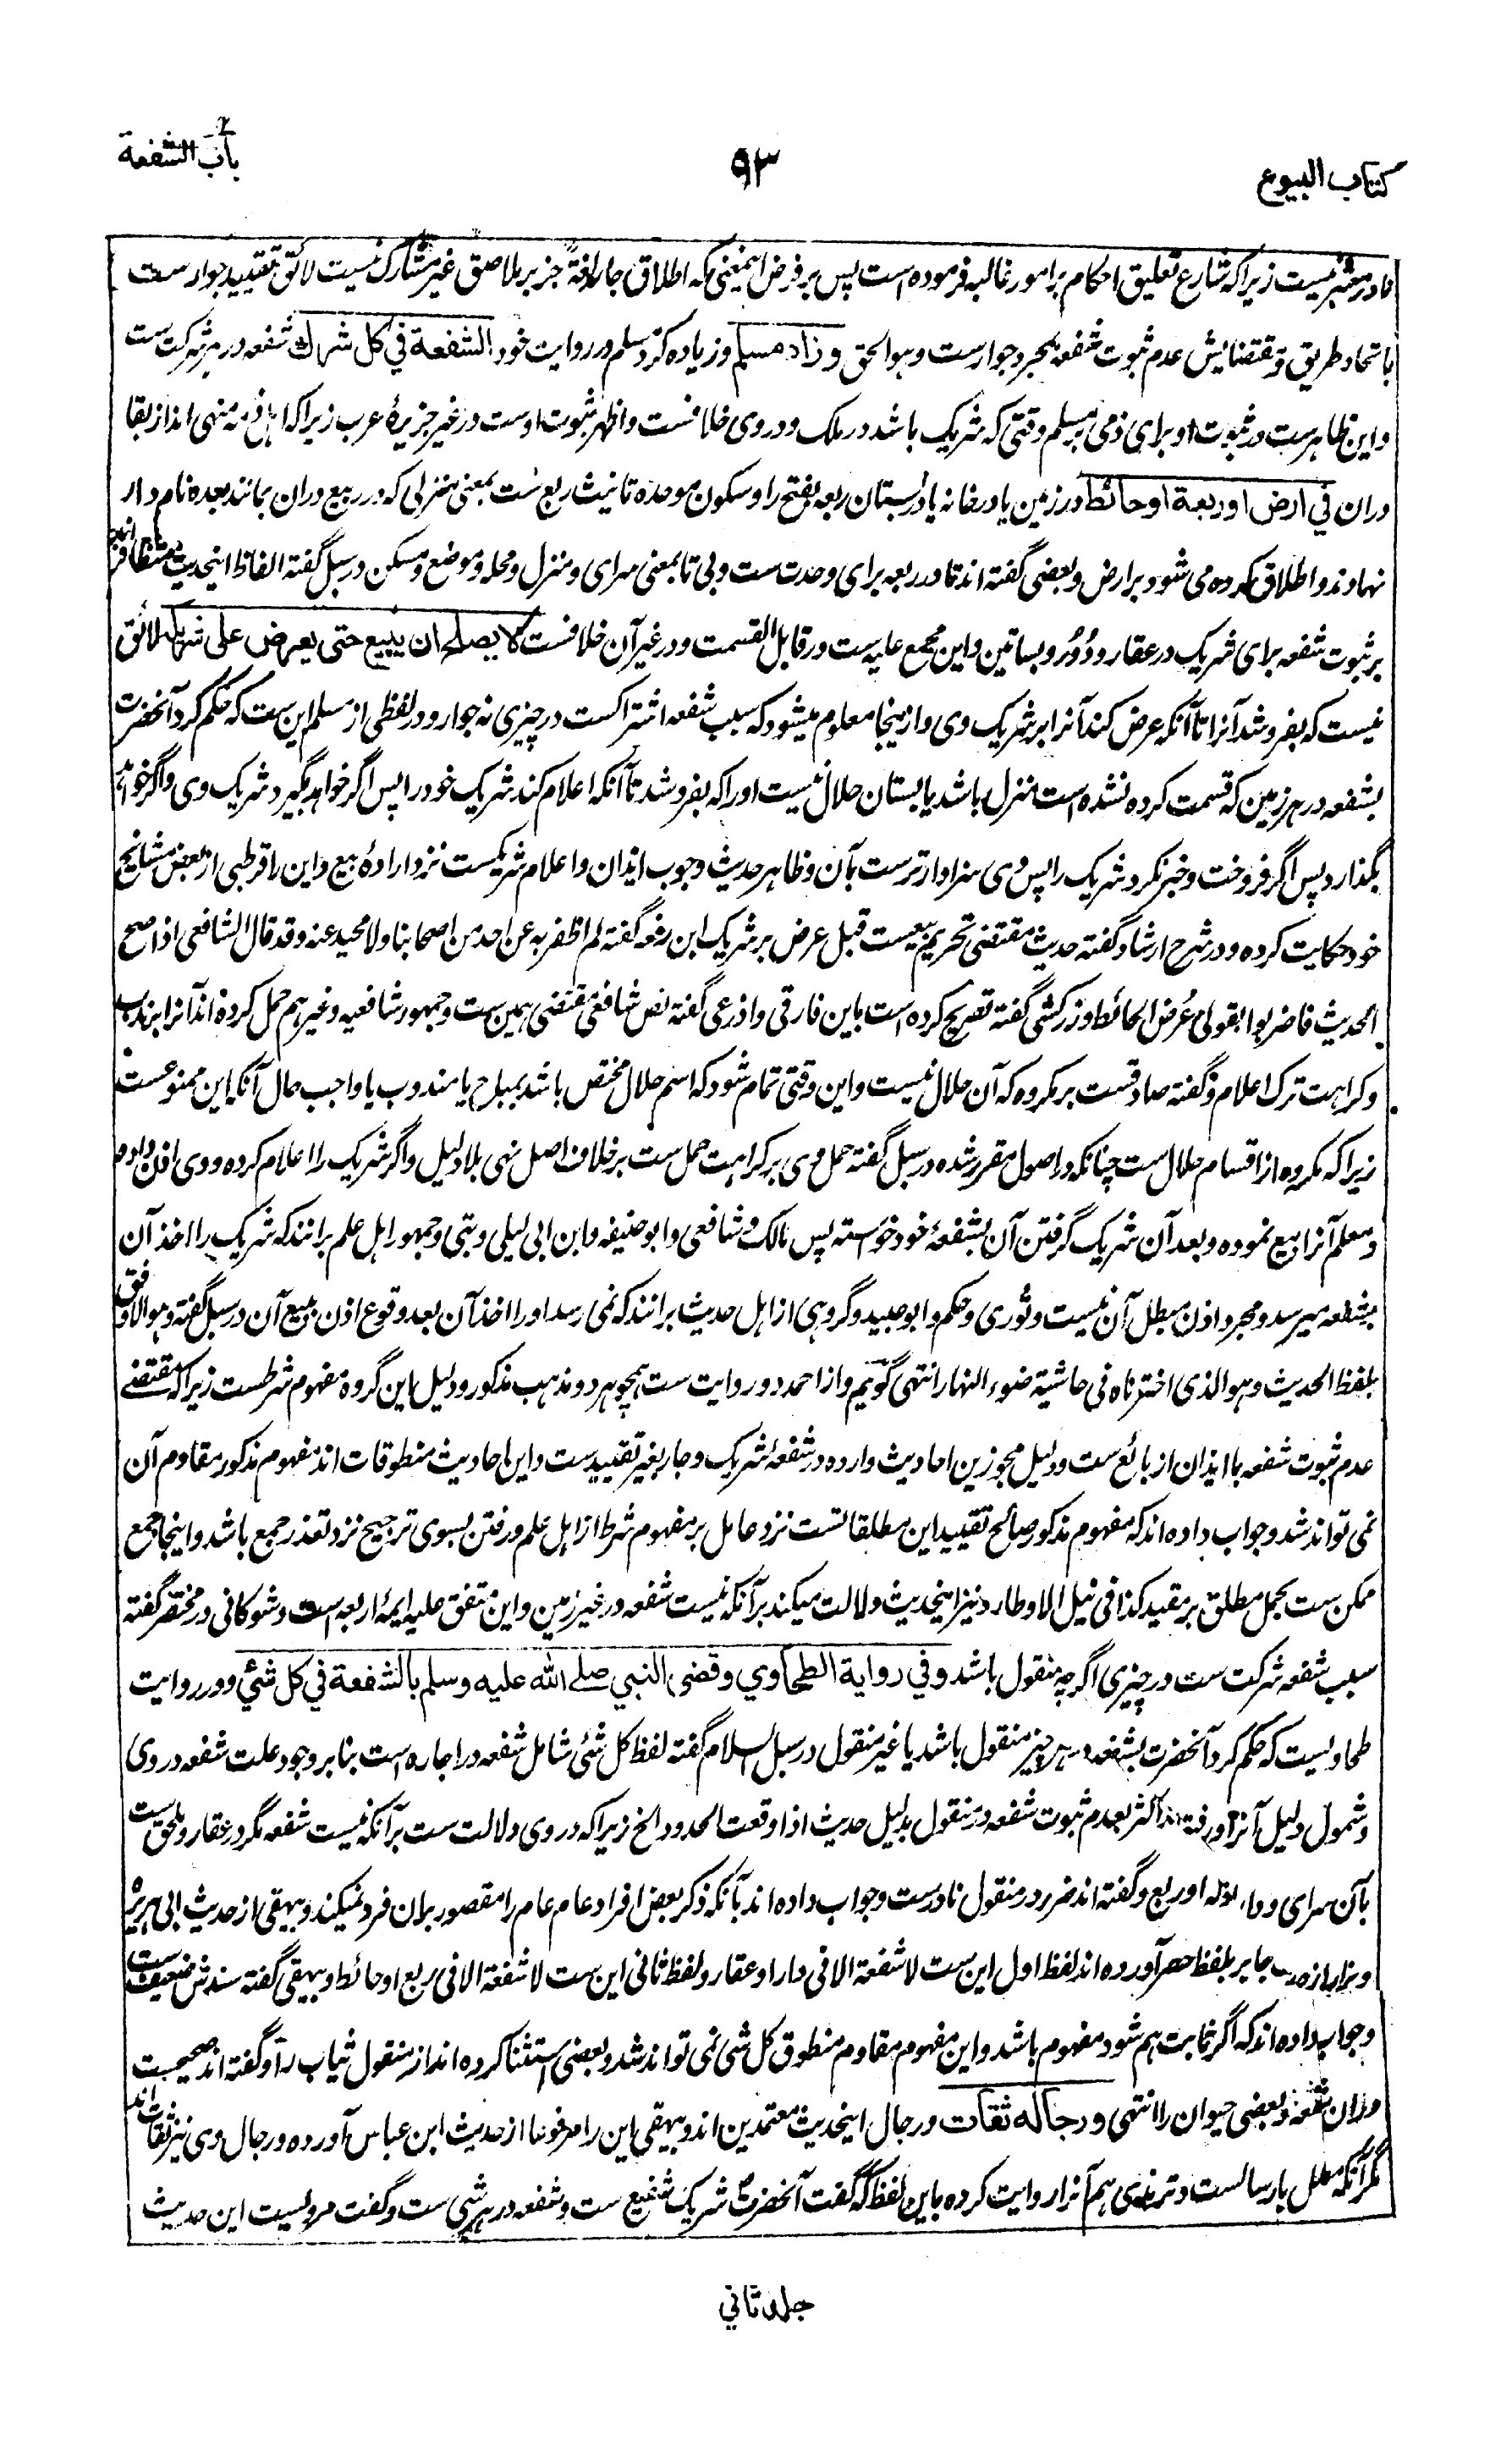 کتاب البیوع
۹۳
باب الشفعة
نادر معتبر نیست زیراکه شارع تعلیق احکام بر امور غالبه فرموده است پس بر فرض اینمعنی که اطلاق جار لغةً جز بر ملاصق غیر مشارک نیست لائق تقیید جوار ست
باتحاد طریق و مقتضایش عدم ثبوت شفعه بمجرد جوار ست وهوالحق وزاد مسلم و زیاده کرد مسلم در روایت خود الشفعة في کل شرك شفعه در هر شرکت ست
واین ظاهر ست در ثبوت او برای ذمی بر مسلم وقتی که شریک باشد در ملک و در وی خلافست واظهر ثبوت اوست در غیر جزیرهٔ عرب زیراکه اهل ذمه منهی اند از بقا
دران في ارض او ربعة او حائط در زمین یا در خانه یا در بستان ربعه بفتح را وسکون موحده تانیث ربع ست بمعنی منزلی که در ربیع دران بمانند بعده نام دار
نهادند و اطلاق کرده می شود بر ارض و بعضی گفته اند تا در ربعه برای وحدت ست و بی تا بمعنی سرای و منزل و محله و موضع و مسکن در سبل گفته الفاظ اینحدیث متظافر اند
بر ثبوت شفعه برای شریک در عقار و دُوُر و بساتین واین مجمع علیه ست در قابل القسمت و در غیر آن خلافست لا یصلح ان یبیع حتی یعرض علی شریکه لائق
نیست که بفروشد آنرا تاآنکه عرض کند آنرا بر شریک وی و ازینجا معلوم میشود که سبب شفعه اشتراکست در چیزی نه جوار و در لفظی از مسلم این ست که حکم کرد آنحضرت
بشفعه در هر زمین که قسمت کرده نشده است منزل باشد یا بستان حلال نیست او را که بفروشد تاآنکه اعلام کند شریک خود را پس اگر خواهد بگیرد شریک وی واگر خواهد
بگذارد پس اگر فروخت و خبر نکرد شریک را پس وی سزاوارتر ست بآن و ظاهر حدیث وجوب ایذان و اعلام شریکست نزد ارادهٔ بیع واین را قرطبی از بعض مشائخ
خود حکایت کرده و در شرح ارشاد گفته حدیث مقتضی تحریم بیعست قبل عرض بر شریک ابن رفعه گفته لم اظفر به عن احد من اصحابنا ولا محید عنه وقد قال الشافعی اذا صح
الحدیث فاضربوا بقولی عُرض الحائط و زرکشی گفته تصریح کرده است باین فارقی واذرعی گفته نص شافعی مقتضی همین ست و جمهور شافعیه وغیرهم حمل کرده اند آنرا بر ندب
وکراهت ترک اعلام و گفته صادقست بر مکروه که آن حلال نیست واین وقتی تمام شود که اسم حلال مختص باشد بمباح یا مندوب یا واجب حال آنکه این ممنوعست
زیراکه مکروه از اقسام حلال ست چنانکه در اصول مقرر شده در سبل گفته حمل وی بر کراهت حمل ست بر خلاف اصل نهی بلا دلیل واگر شریک را اعلام کرده و وی اذن داده
و معلم آنرا بیع نموده و بعد آن شریک گرفتن آن بشفعهٔ خود خواسته پس مالک و شافعی وابوحنیفه وابن ابی لیلی و بتی و جمهور اهل علم برانند که شریک را اخذ آن
بشفعه میرسد و مجرد اذن مبطل آن نیست و ثوری و حکم وابوعبید و گروهی از اهل حدیث برانند که نمی رسد او را اخذ آن بعد وقوع اذن ببیع آن در سبل گفته وهو الاوفق
بلفظ الحدیث وهو الذی اخترناه فی حاشیة ضوء النهار انتهی گویم واز احمد دو روایت ست همچو هر دو مذهب مذکور و دلیل این گروه مفهوم شرطست زیراکه مقتضی
عدم ثبوت شفعه با ایذان از بائع ست و دلیل مجوزین احادیث وارده در شفعهٔ شریک و جار بغیر تقیید ست واین احادیث منطوقات اند مفهوم مذکور مقاوم آن
نمی تواند شد وجواب داده اند که مفهوم مذکور صالح تقیید این مطلقاتست نزد عامل بر مفهوم شرط از اهل علم ورفتن بسوی ترجیح نزد تعذر جمع باشد واینجا جمع
ممکن ست بحمل مطلق بر مقید کذا فی نیل الاوطار و نیز اینحدیث دلالت میکند برآنکه نیست شفعه در غیر زمین واین متفق علیه ایمهٔ اربعه است و شوکانی در مختصر گفته
سبب شفعه شرکت ست در چیزی اگرچه منقول باشد وفي رواية الطحاوي وقضی النبي صلے الله عليه وسلم بالشفعة في كل شئي و در روایت
طحاویست که حکم کرد آنحضرت بشفعه در هر چیز منقول باشد یا غیر منقول در سبل السلام گفته لفظ کل شئی شامل شفعه در اجاره است بنابر وجود علت شفعه در وی
و شمول دلیل آنرا و رفته اند اکثر بعدم ثبوت شفعه در منقول بدلیل حدیث اذا وقعت الحدود الخ زیراکه در وی دلالت ست برآنکه نیست شفعه مگر در عقار و ملحق ست
بآن سرای و دار لقوله او ربع و گفته اند ضرر در منقول نادرست وجواب داده اند بآنکه ذکر بعض افراد عام عام را مقصور بران فرد نمیکند و بیهقی از حدیث ابی هریره
و بزار از جابر بلفظ حصر آورده اند لفظ اول این ست لا شفعة الا فی دار او عقار و لفظ ثانی این ست لا شفعة الا فی ربع او حائط و بیهقی گفته سندش ضعیف ست
وجواب داده اند که اگر ثابت هم شود مفهوم باشد واین مفهوم مقاوم منطوق کل شی نمی تواند شد و بعضی استثنا کرده اند از منقول ثیاب را و گفته اند صحیحست
دران شفعه و بعضی حیوان را انتهی ورجاله ثقات و رجال اینحدیث معتمدین اند و بیهقی این را مرفوعا از حدیث ابن عباس آورده و رجال وی نیز ثقات اند
مگر آنکه معلل بارسالست و ترمذی هم آنرا روایت کرده باین لفظ که گفت آنحضرت شریک شفیع ست و شفعه در هر شی ست و گفت مرویست این حدیث
جلد ثاني